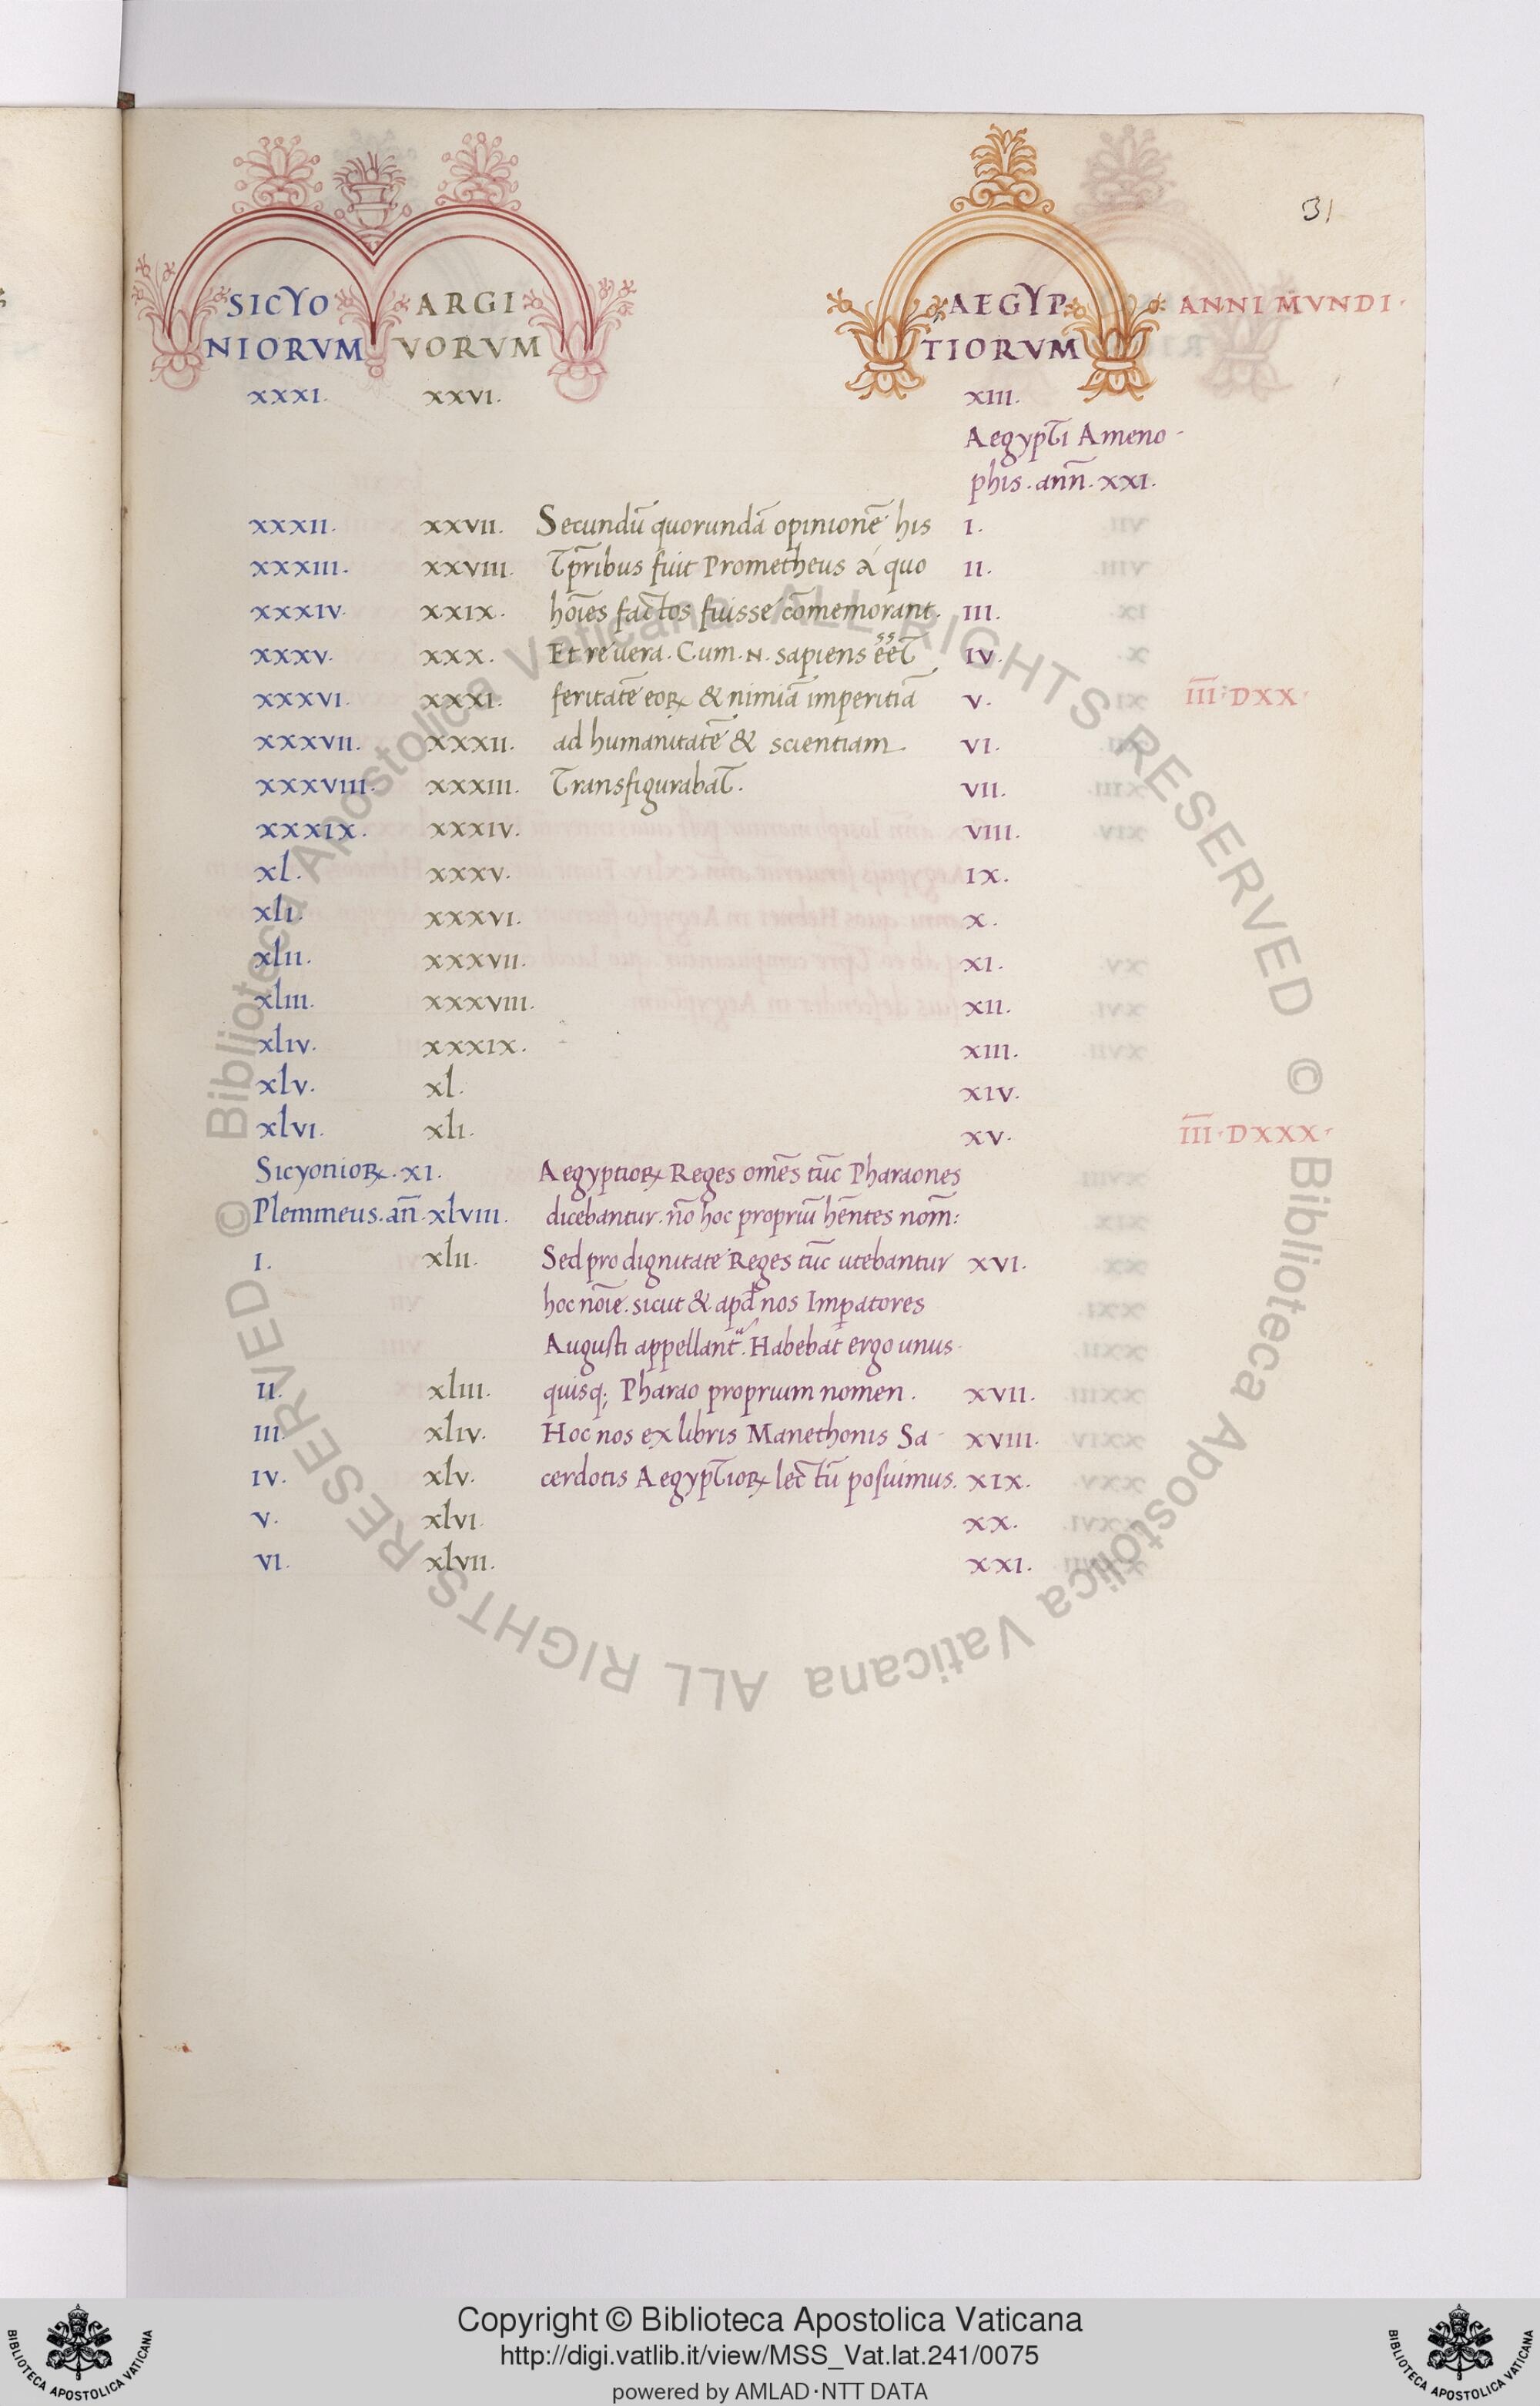 31
SICYO ARGI AEGYP ANNI MVNDI.
NIORVM VORVM TIORVM
XXXI. XXVI. XIII.
Aegypti Ameno-
phis. ann̄. XXI.
XXXII. XXVII. Secundū quorundā opinionē his I.
XXXIII. XXVIII. tp̄ribus fuit Prometheus à quo II.
XXXIV. XXIX. hoīes factos fuisse cōmemorant. III.
XXXV. XXX. Et re uera. Cum .N. sapiens eēt IV.
XXXVI. XXXI. feritatē eoꝝ & nimiā imperitiā V. III̅. DXX.
XXXVII. XXXII. ad humanitatē & scientiam VI.
XXXVIII. XXXIII. Transfigurabat. VII.
XXXIX. XXXIV. VIII.
xl. XXXV. IX.
xli. XXXVI. X.
xlii. XXXVII. XI.
xliii. XXXVIII. XII.
xliv. XXXIX. XIII.
xlv. xl. XIV.
xlvi. xli. XV. III̅. DXXX.
Sicyonioꝝ. XI. Aegyptioꝝ Reges om̄es tūc Pharaones
Plemmeus. an̄. xlviii. dicebantur. nō hoc propriū hēntes nom̄:
I. xlii. Sed pro dignitate Reges tūc utebantur XVI.
hoc noīe. sicut & apd̄ nos Imꝑatores
Augusti appellant̄. Habebat ergo unus
II. xliii. quisq; Pharao proprium nomen. XVII.
III. xliv. Hoc nos ex libris Manethonis Sa- XVIII.
IV. xlv. cerdotis Aegyptioꝝ lectū posuimus. XIX.
V. xlvi. XX.
VI. xlvii. XXI.
© Biblioteca Apostolica Vaticana ALL RIGHTS RESERVED
© Biblioteca Apostolica Vaticana ALL RIGHTS RESERVED
Copyright © Biblioteca Apostolica Vaticana
http://digi.vatlib.it/view/MSS_Vat.lat.241/0075
powered by AMLAD·NTT DATA
BIBLIOTECA APOSTOLICA VATICANA
BIBLIOTECA APOSTOLICA VATICANA